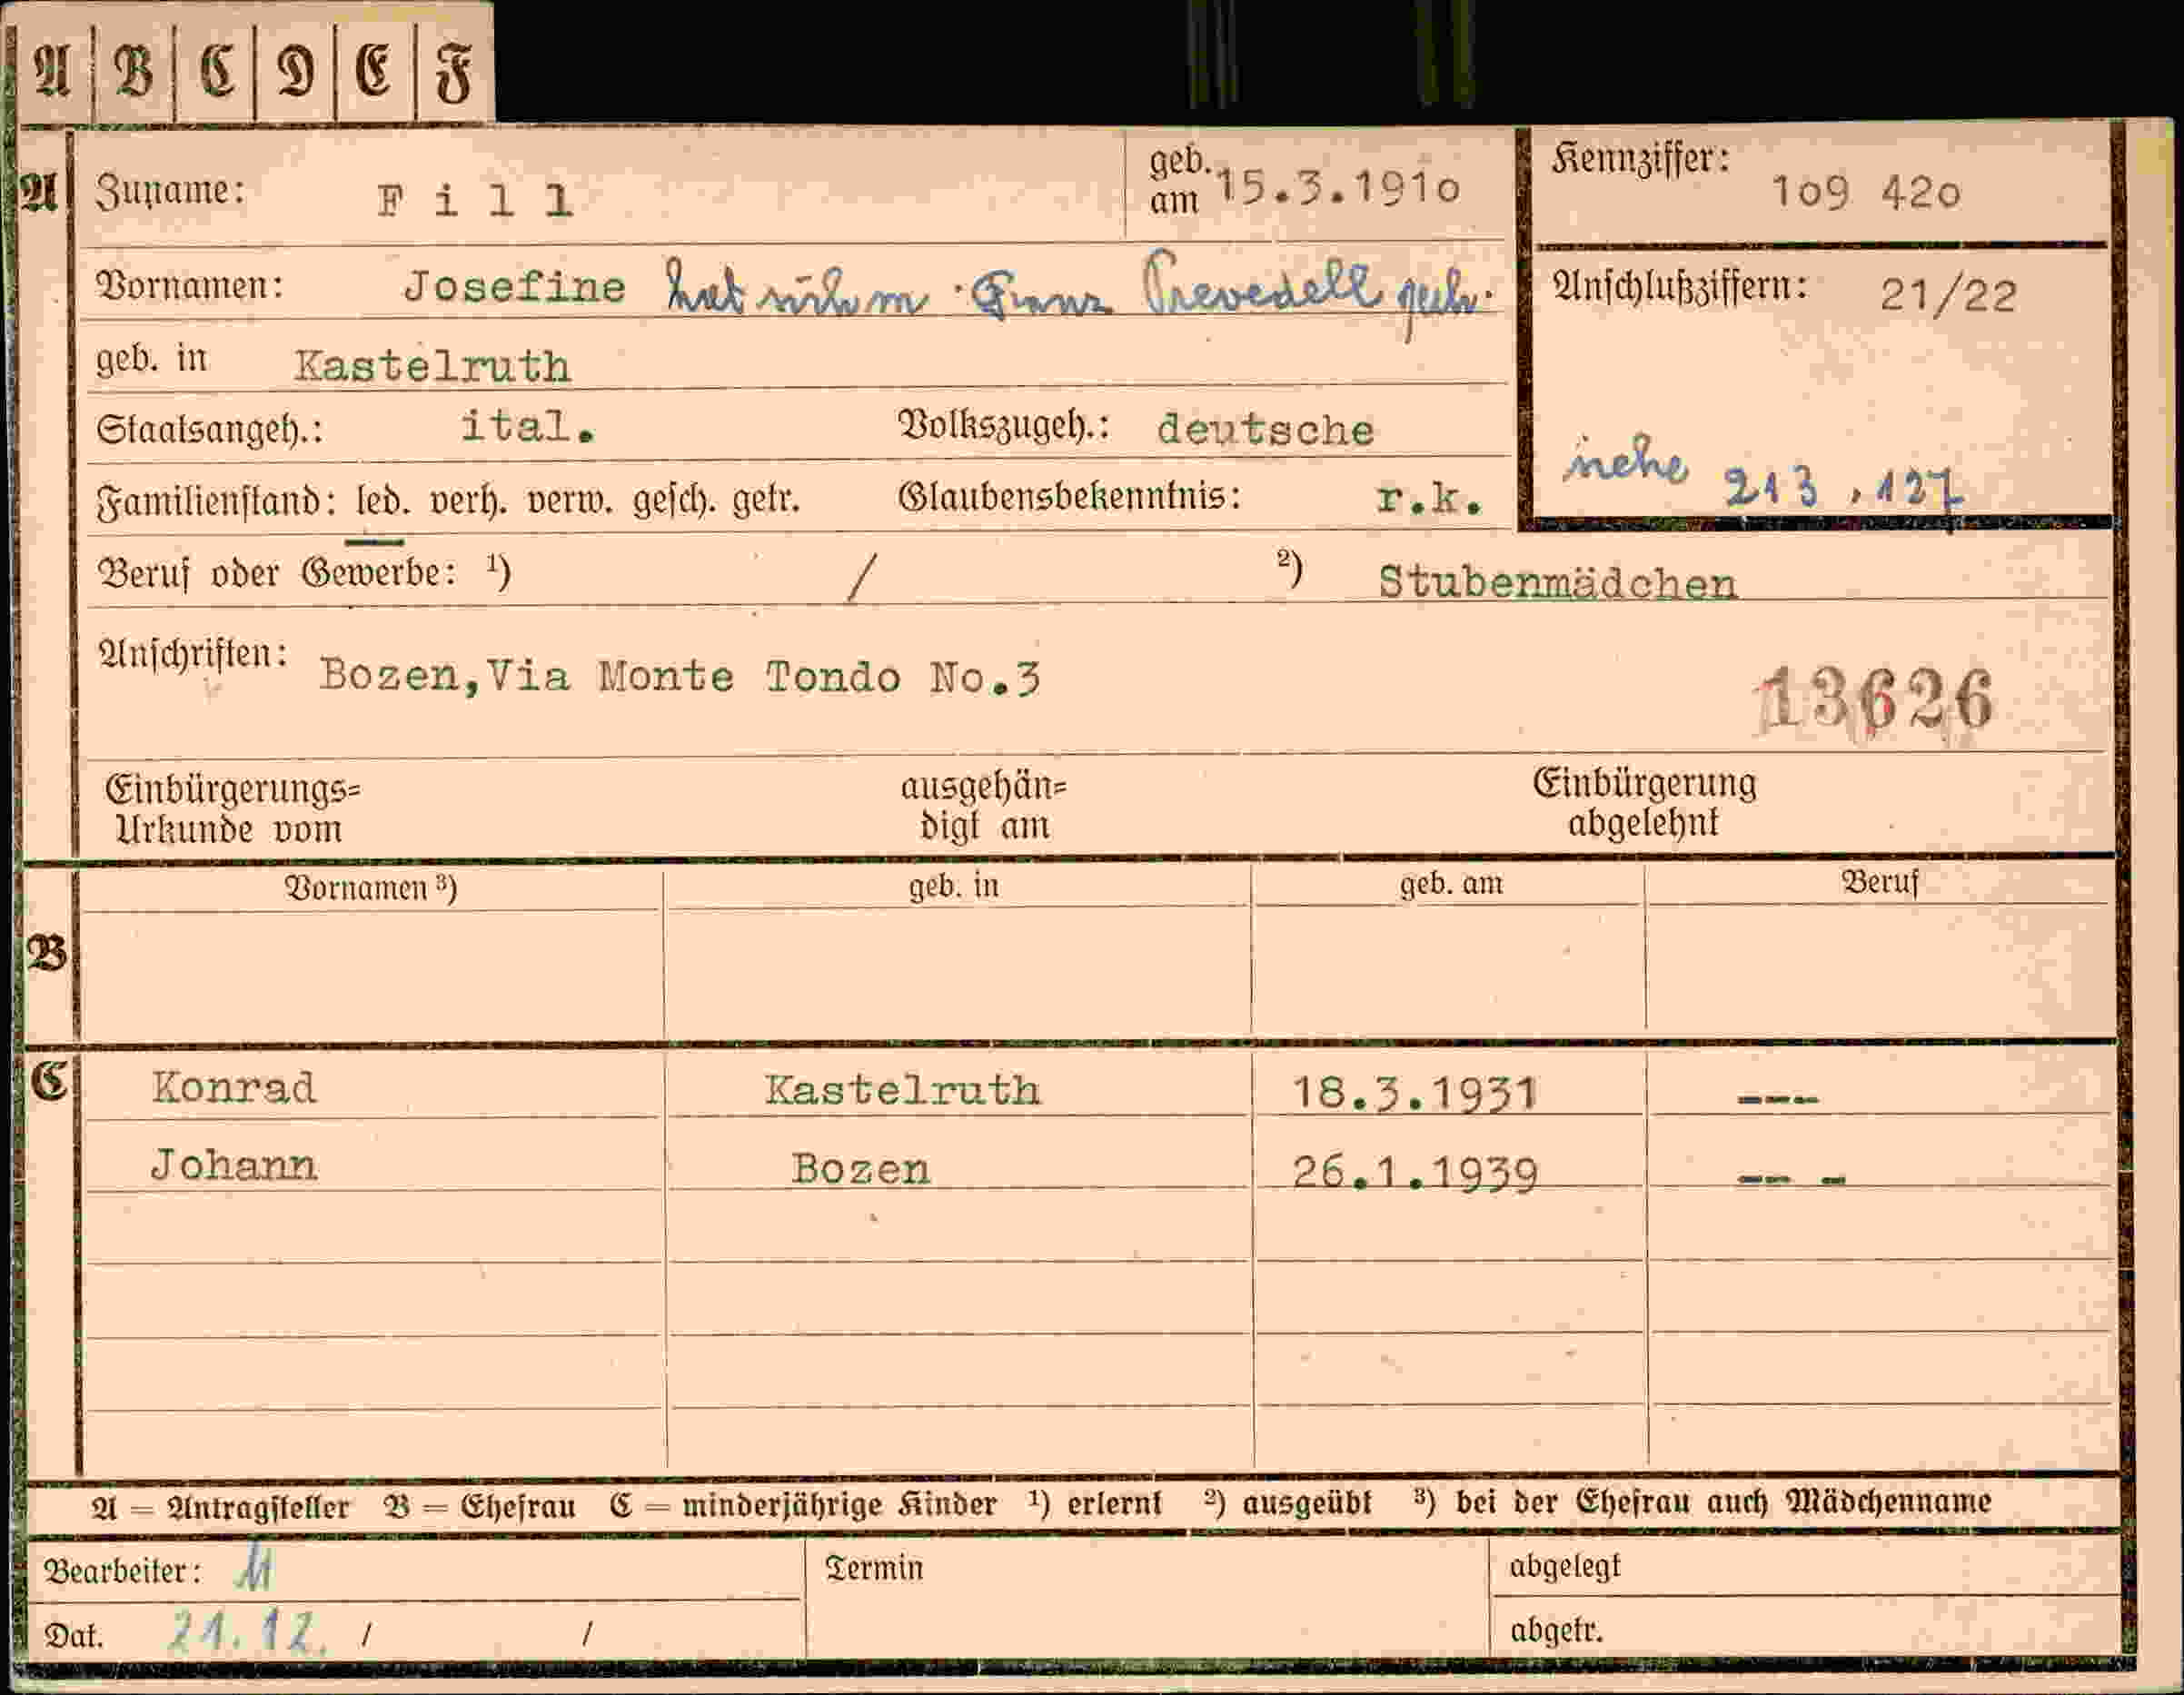 A B C D E F
A Zuname: Fill geb. am 15.3.1910 Kennziffer: 109 420
Vornamen: Josefine hat sich m. Franz Prevedell Anschlußziffern: 21/22
geb. in Kastelruth
Staatsangeh.: ital. Volkszugeh.: deutsche
siehe 213,127
Familienstand: led. verh. verw. gesch. getr. Glaubensbekenntnis: r.k.
Beruf oder Gewerbe: 1) / 2) Stubenmädchen
Anschriften: Bozen,Via Monte Tondo No.3
13626
Einbürgerungs= ausgehän= Einbürgerung
Urkunde vom digt am abgelehnt
Vornamen 3) geb. in geb. am Beruf
B
C Konrad Kastelruth 18.3.1931 ---
Johann Bozen 26.1.1939 -- -
A = Antragsteller B = Ehefrau C = minderjährige Kinder 1) erlernt 2) ausgeübt 3) bei der Ehefrau auch Mädchenname
Bearbeiter: Termin abgelegt
Dat. 21.12. / / abgetr.